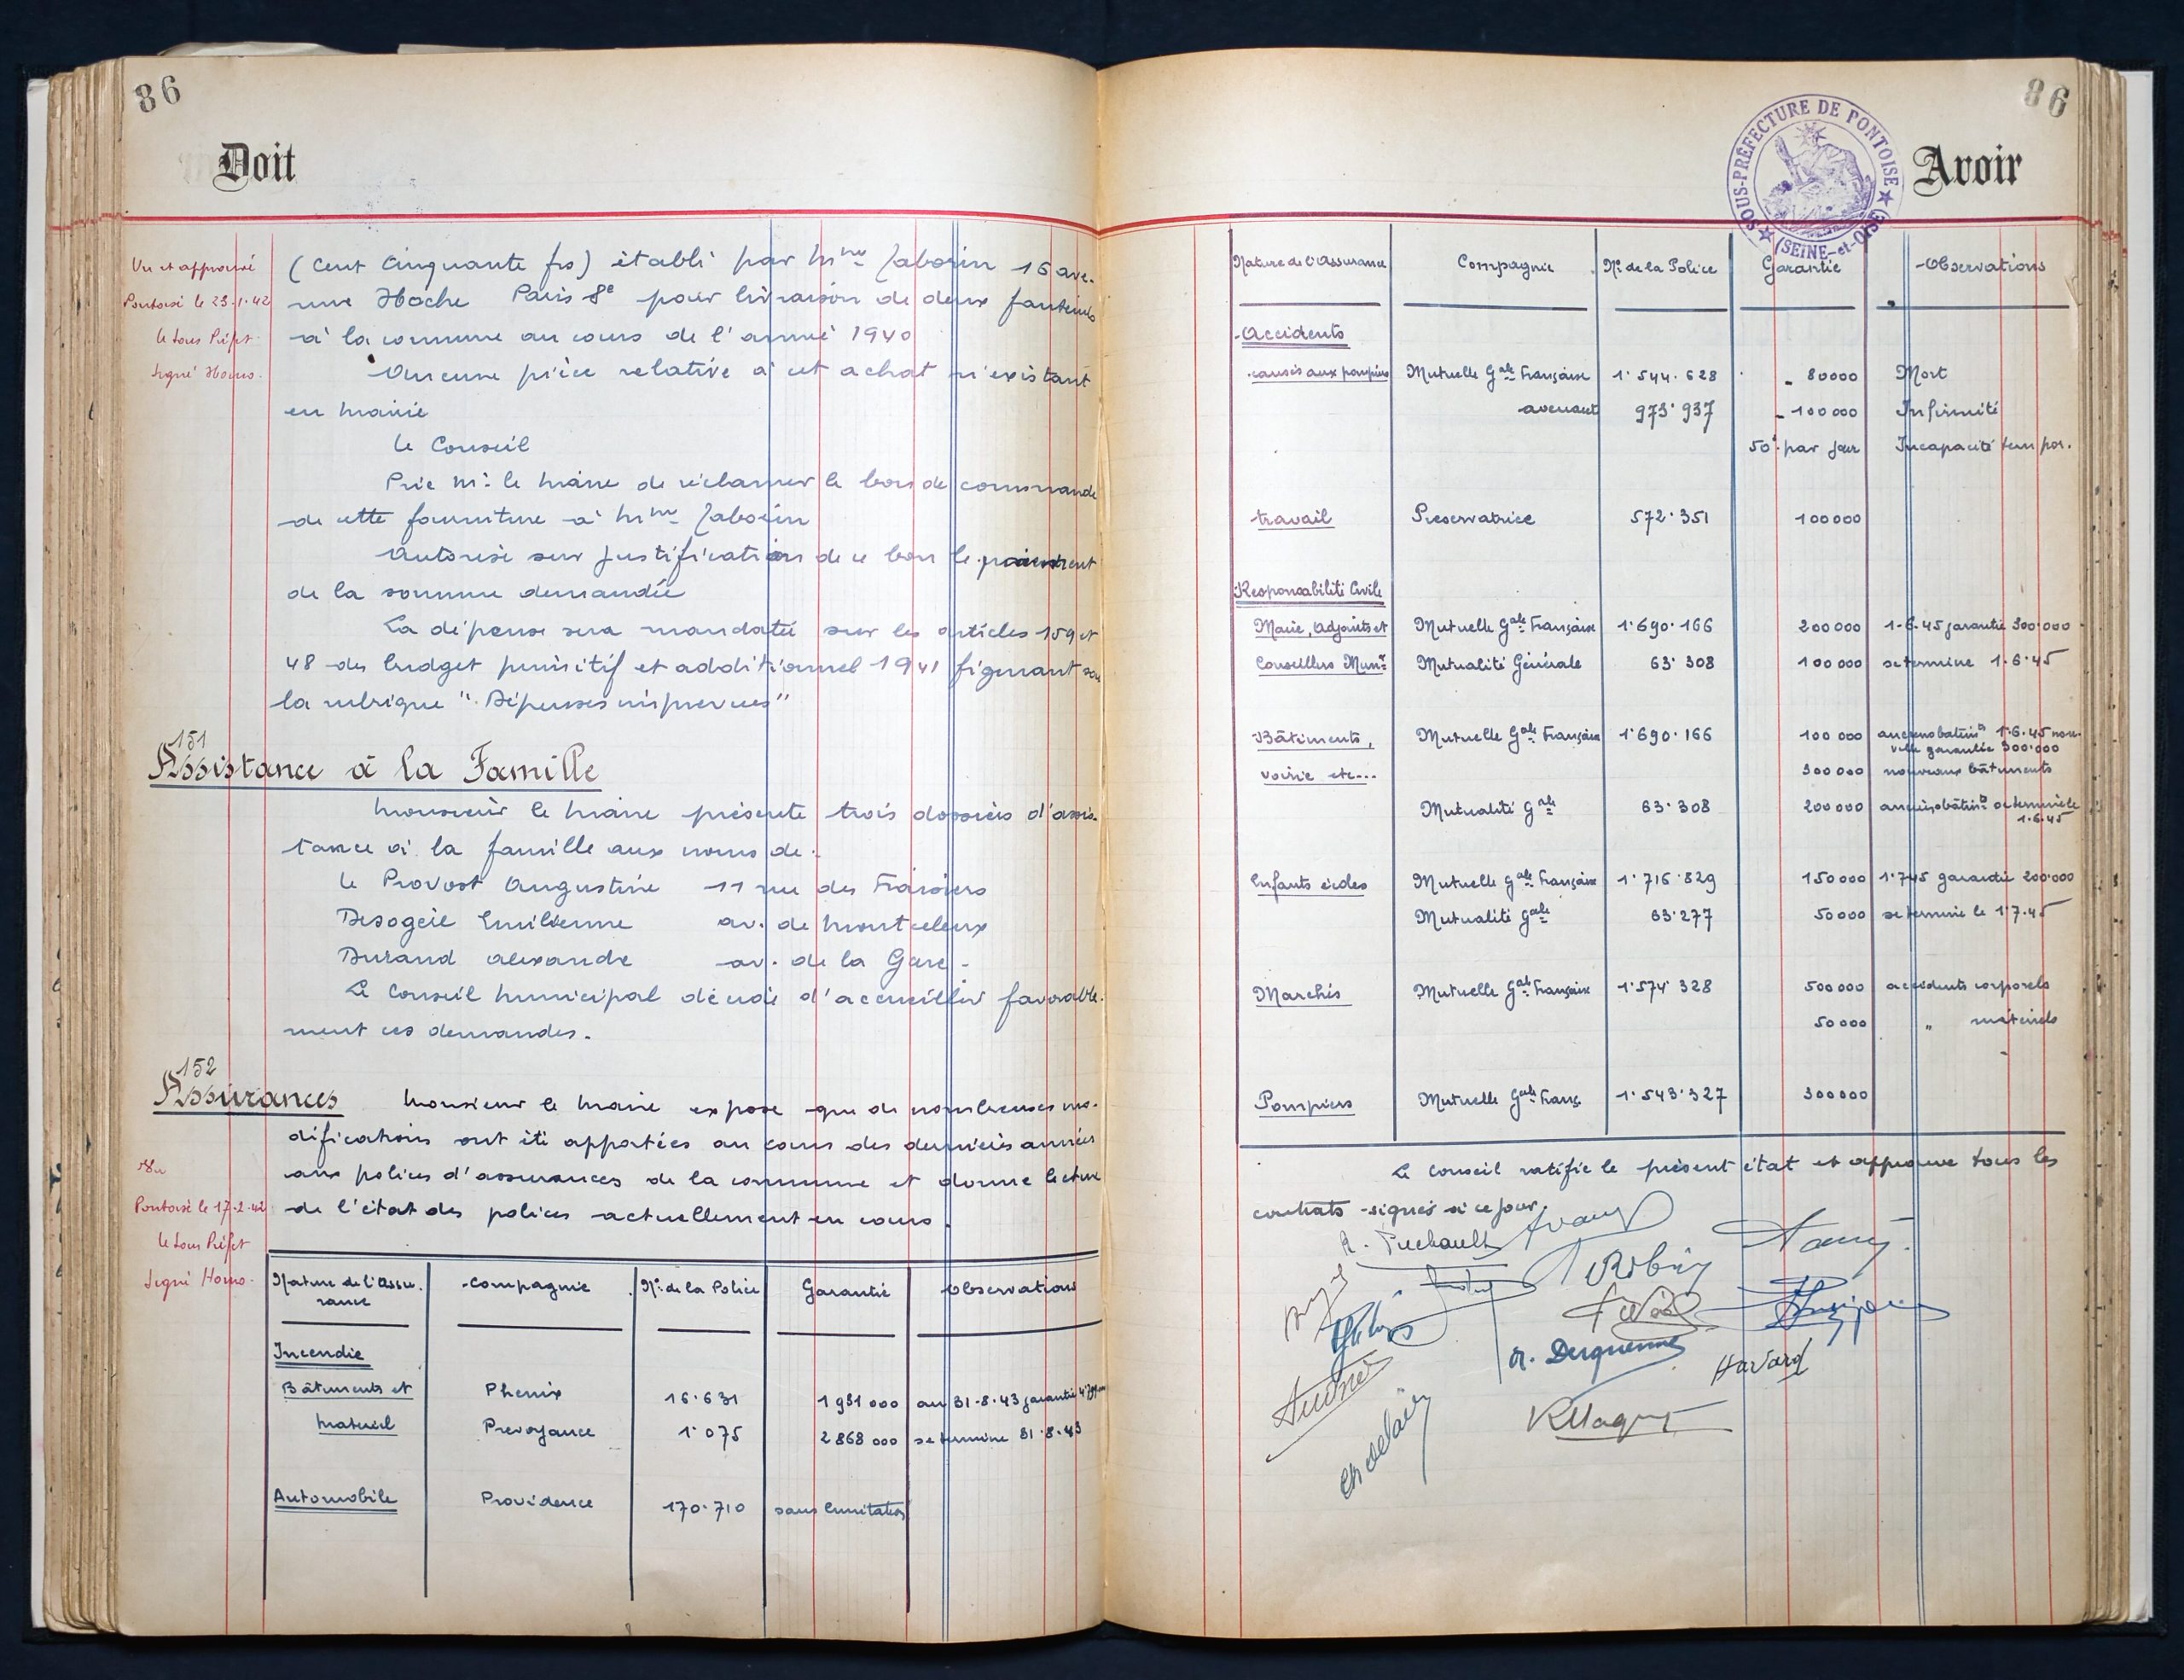 86
Doit
Vu et approuvé
Pontoise le 23.1.42
le Sous Préfet
signé Homo.
(Cent cinquante frs) établi par Mme Zaborin 16 ave-
nue Hoche Paris 8e pour livraison de deux fauteuils
à la commune au cours de l'année 1940
Aucune pièce relative à cet achat n'existant
en mairie
le Conseil
Prie Mr le Maire de réclamer le bon de commande
de cette fourniture à Mme Zaborin
Autorise sur justification de ce bon le paiement
de la somme demandée
La dépense sera mandatée sur les articles 159 et
48 des budget primitif et additionnel 1941 figurant sous
la rubrique "Dépenses imprévues"
151
Assistance à la Famille
Monsieur le Maire présente trois dossiers d'assis-
tance à la famille aux noms de :
Le Provost Augustine 11 rue des Fraisiers
Desogeie Emilienne av. de Montceleux
Durand Alexandre av. de la Gare -
Le Conseil Municipal décide d'accueillir favorable-
ment ces demandes.
152
Assurances Monsieur le Maire expose que de nombreuses mo-
difications ont été apportées au cours des dernières années
aux polices d'assurances de la commune et donne lecture
de l'état des polices actuellement en cours.
Vu
Pontoise le 17.2.42
le Sous Préfet
signé Homo.
Nature de l'Assu-
rance Compagnie N° de la Police Garantie Observations
Incendie
Bâtiments et Phenix 16.631 1 931 000 au 31-8-43 garantie
Matériel Prevoyance 1.075 2 868 000 se termine 31.8.43
Automobile Providence 170.710 sans limitation
86
Avoir
SOUS-PRÉFECTURE DE PONTOISE
(SEINE-et-OISE)
Nature de l'Assurance Compagnie N° de la Police Garantie Observations
Accidents
causés aux pompiers Mutuelle Gale Française 1.544.628 80000 Mort
avenant 973.937 100000 Infirmité
50f par jour Incapacité tempor.
travail Preservatrice 572.351 100000
Responsabilité Civile
Maire, Adjoints et Mutuelle Gale Française 1.690.166 200000 1-6-45 garantie 300.000
Conseillers Munx Mutualité Générale 63.308 100000 se termine 1.6.45
Bâtiments, Mutuelle Gale Française 1.690.166 100 000 anciens batints 1.6.45 nou-
velle garantie 300.000
voirie etc... 300 000 nouveaux bâtiments
Mutualité Gale 63.308 200 000 anciens bâtints se termine le
1.6.45
Enfants écoles Mutuelle Gale Française 1.716.829 150000 1.7.45 garantie 200.000
Mutualité Gale 63.277 50000 se termine le 1.7.45
Marchés Mutuelle Gale Française 1.574.328 500000 accidents corporels
50000 " matériels
Pompiers Mutuelle Gale Franç 1.543.327 300000
Le Conseil ratifie le présent état et approuve tous les
contrats signés à ce jour.
Robin
A. Duquenne
Havard